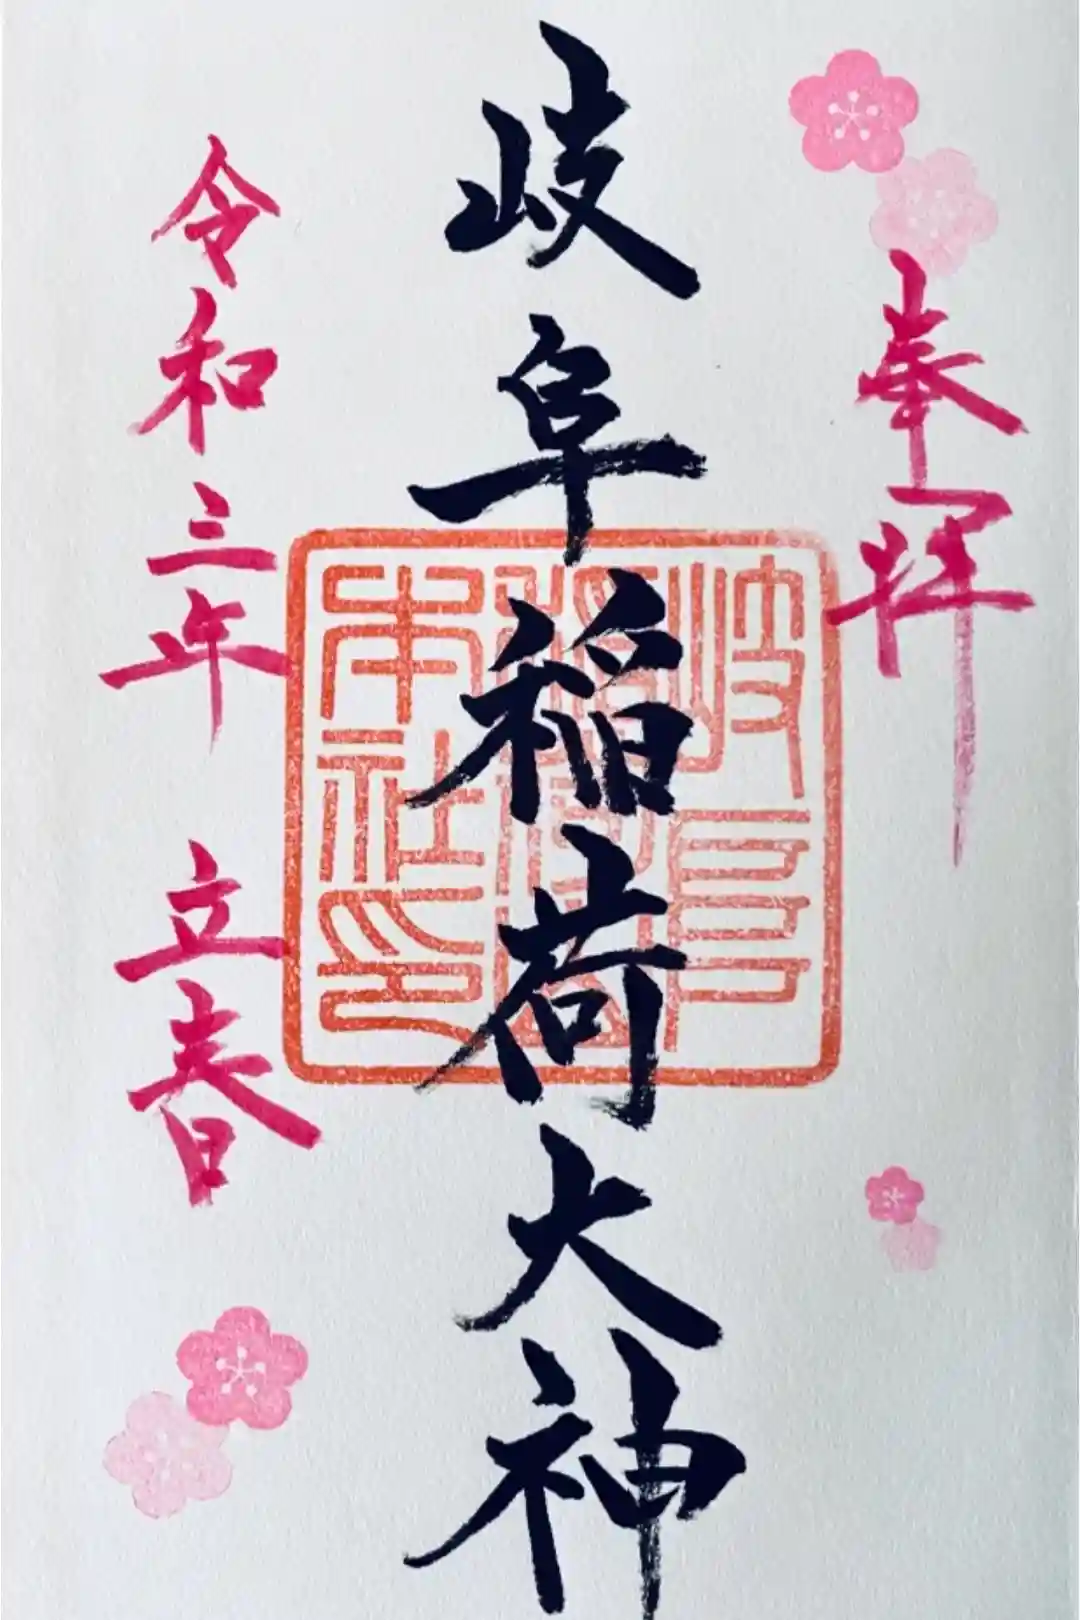 奉拝
岐阜稲荷大神
岐阜
稲荷山
本社印
令和三年 立春